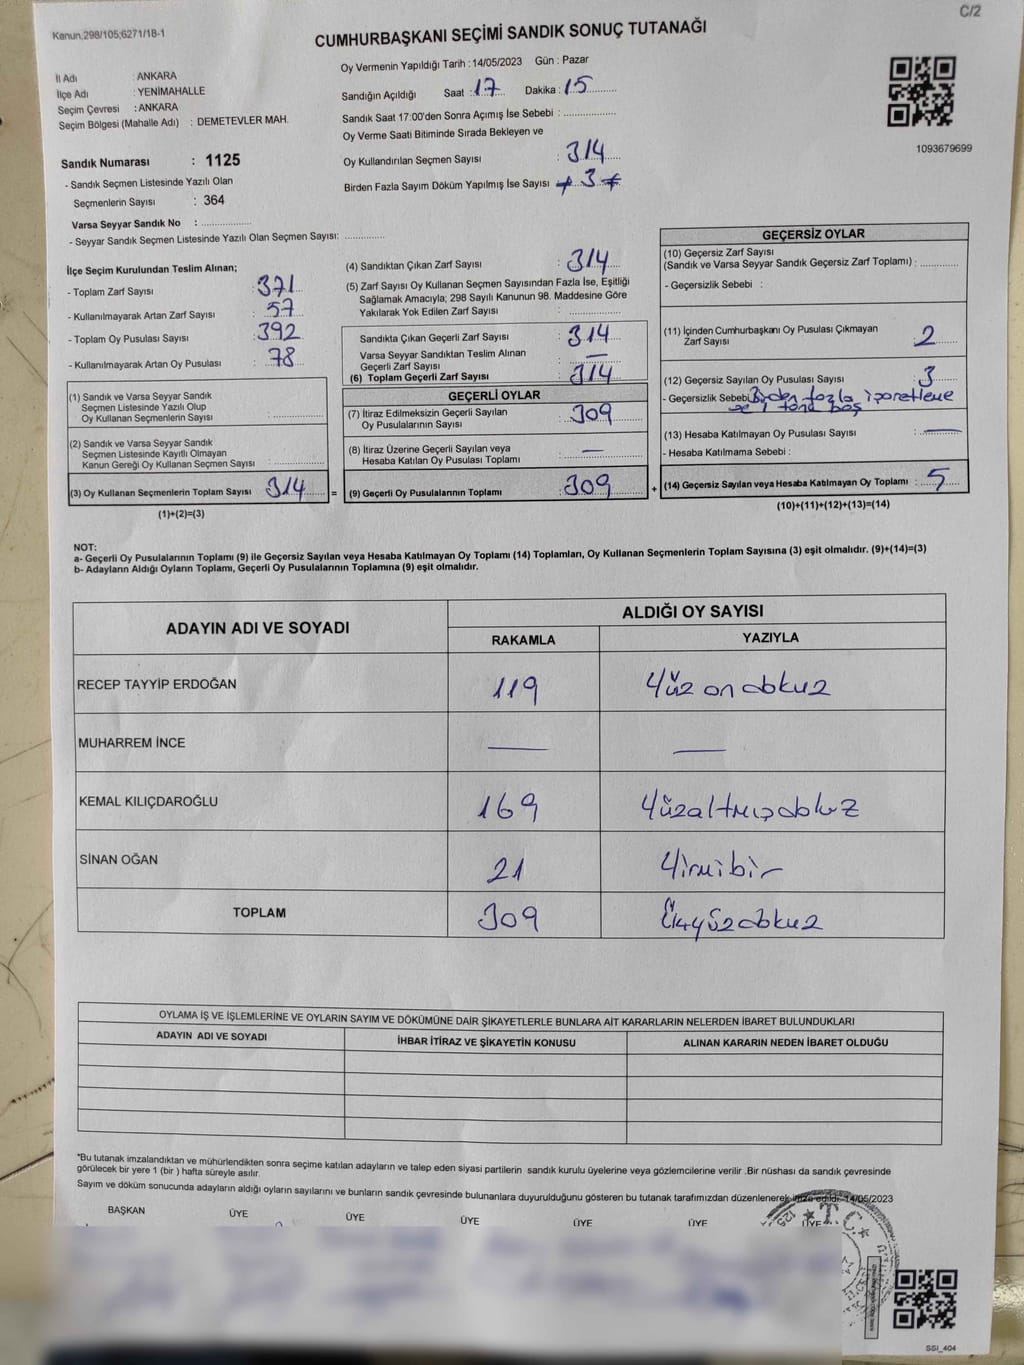 C/2
Kanun,298/105;6271/18-1
CUMHURBAŞKANI SEÇİMİ SANDIK SONUÇ TUTANAĞI
İl Adı : ANKARA
İlçe Adı : YENİMAHALLE
Seçim Çevresi : ANKARA
Seçim Bölgesi (Mahalle Adı) : DEMETEVLER MAH.
Sandık Numarası : 1125
- Sandık Seçmen Listesinde Yazılı Olan
Seçmenlerin Sayısı : 364
Varsa Seyyar Sandık No : ..............
- Seyyar Sandık Seçmen Listesinde Yazılı Olan Seçmen Sayısı: ............
Oy Vermenin Yapıldığı Tarih : 14/05/2023 Gün : Pazar
Sandığın Açıldığı Saat : 17 Dakika : 15
Sandık Saat 17:00'den Sonra Açımış İse Sebebi : ..............
Oy Verme Saati Bitiminde Sırada Bekleyen ve
Oy Kullandırılan Seçmen Sayısı : 314
Birden Fazla Sayım Döküm Yapılmış İse Sayısı : 3
1093679699
İlçe Seçim Kurulundan Teslim Alınan;
- Toplam Zarf Sayısı : 371
- Kullanılmayarak Artan Zarf Sayısı : 57
- Toplam Oy Pusulası Sayısı : 392
- Kullanılmayarak Artan Oy Pusulası : 78
(1) Sandık ve Varsa Seyyar Sandık
Seçmen Listesinde Yazılı Olup
Oy Kullanan Seçmenlerin Sayısı : ..............
(2) Sandık ve Varsa Seyyar Sandık
Seçmen Listesinde Kayıtlı Olmayan
Kanun Gereği Oy Kullanan Seçmen Sayısı : ..............
(3) Oy Kullanan Seçmenlerin Toplam Sayısı : 314
(1)+(2)=(3)
=
(4) Sandıktan Çıkan Zarf Sayısı : 314
(5) Zarf Sayısı Oy Kullanan Seçmen Sayısından Fazla İse, Eşitliği
Sağlamak Amacıyla; 298 Sayılı Kanunun 98. Maddesine Göre
Yakılarak Yok Edilen Zarf Sayısı : ..............
Sandıkta Çıkan Geçerli Zarf Sayısı : 314
Varsa Seyyar Sandıktan Teslim Alınan
Geçerli Zarf Sayısı : —
(6) Toplam Geçerli Zarf Sayısı : 314
GEÇERLİ OYLAR
(7) İtiraz Edilmeksizin Geçerli Sayılan
Oy Pusulalarının Sayısı : 309
(8) İtiraz Üzerine Geçerli Sayılan veya
Hesaba Katılan Oy Pusulası Toplamı : —
(9) Geçerli Oy Pusulalarının Toplamı : 309
+
GEÇERSİZ OYLAR
(10) Geçersiz Zarf Sayısı
(Sandık ve Varsa Seyyar Sandık Geçersiz Zarf Toplamı) : ............
- Geçersizlik Sebebi :
(11) İçinden Cumhurbaşkanı Oy Pusulası Çıkmayan
Zarf Sayısı : 2
(12) Geçersiz Sayılan Oy Pusulası Sayısı : 3
- Geçersizlik Sebebi : Birden fazla işaretleme
ve 1 tane boş
(13) Hesaba Katılmayan Oy Pusulası Sayısı : —
- Hesaba Katılmama Sebebi :
(14) Geçersiz Sayılan veya Hesaba Katılmayan Oy Toplamı : 5
(10)+(11)+(12)+(13)=(14)
NOT:
a- Geçerli Oy Pusulalarının Toplamı (9) ile Geçersiz Sayılan veya Hesaba Katılmayan Oy Toplamı (14) Toplamları, Oy Kullanan Seçmenlerin Toplam Sayısına (3) eşit olmalıdır. (9)+(14)=(3)
b- Adayların Aldığı Oyların Toplamı, Geçerli Oy Pusulalarının Toplamına (9) eşit olmalıdır.
ADAYIN ADI VE SOYADI ALDIĞI OY SAYISI
RAKAMLA YAZIYLA
RECEP TAYYİP ERDOĞAN 119 Yüz on dokuz
MUHARREM İNCE — —
KEMAL KILIÇDAROĞLU 169 Yüzaltmışdokuz
SİNAN OĞAN 21 Yirmibir
TOPLAM 309 Üçyüzdokuz
OYLAMA İŞ VE İŞLEMLERİNE VE OYLARIN SAYIM VE DÖKÜMÜNE DAİR ŞİKAYETLERLE BUNLARA AİT KARARLARIN NELERDEN İBARET BULUNDUKLARI
ADAYIN ADI VE SOYADI İHBAR İTİRAZ VE ŞİKAYETİN KONUSU ALINAN KARARIN NEDEN İBARET OLDUĞU
*Bu tutanak imzalandıktan ve mühürlendikten sonra seçime katılan adayların ve talep eden siyasi partilerin sandık kurulu üyelerine veya gözlemcilerine verilir .Bir nüshası da sandık çevresinde
görülecek bir yere 1 (bir ) hafta süreyle asılır.
Sayım ve döküm sonucunda adayların aldığı oyların sayılarını ve bunların sandık çevresinde bulunanlara duyurulduğunu gösteren bu tutanak tarafımızdan düzenlenerek imza edildi. 14/05/2023
BAŞKAN ÜYE ÜYE ÜYE ÜYE ÜYE ÜYE
T.C.
SSI_404